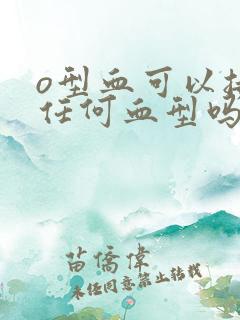 o型血可以接
任何血型吗
苗侨伟
未经同意禁止转载